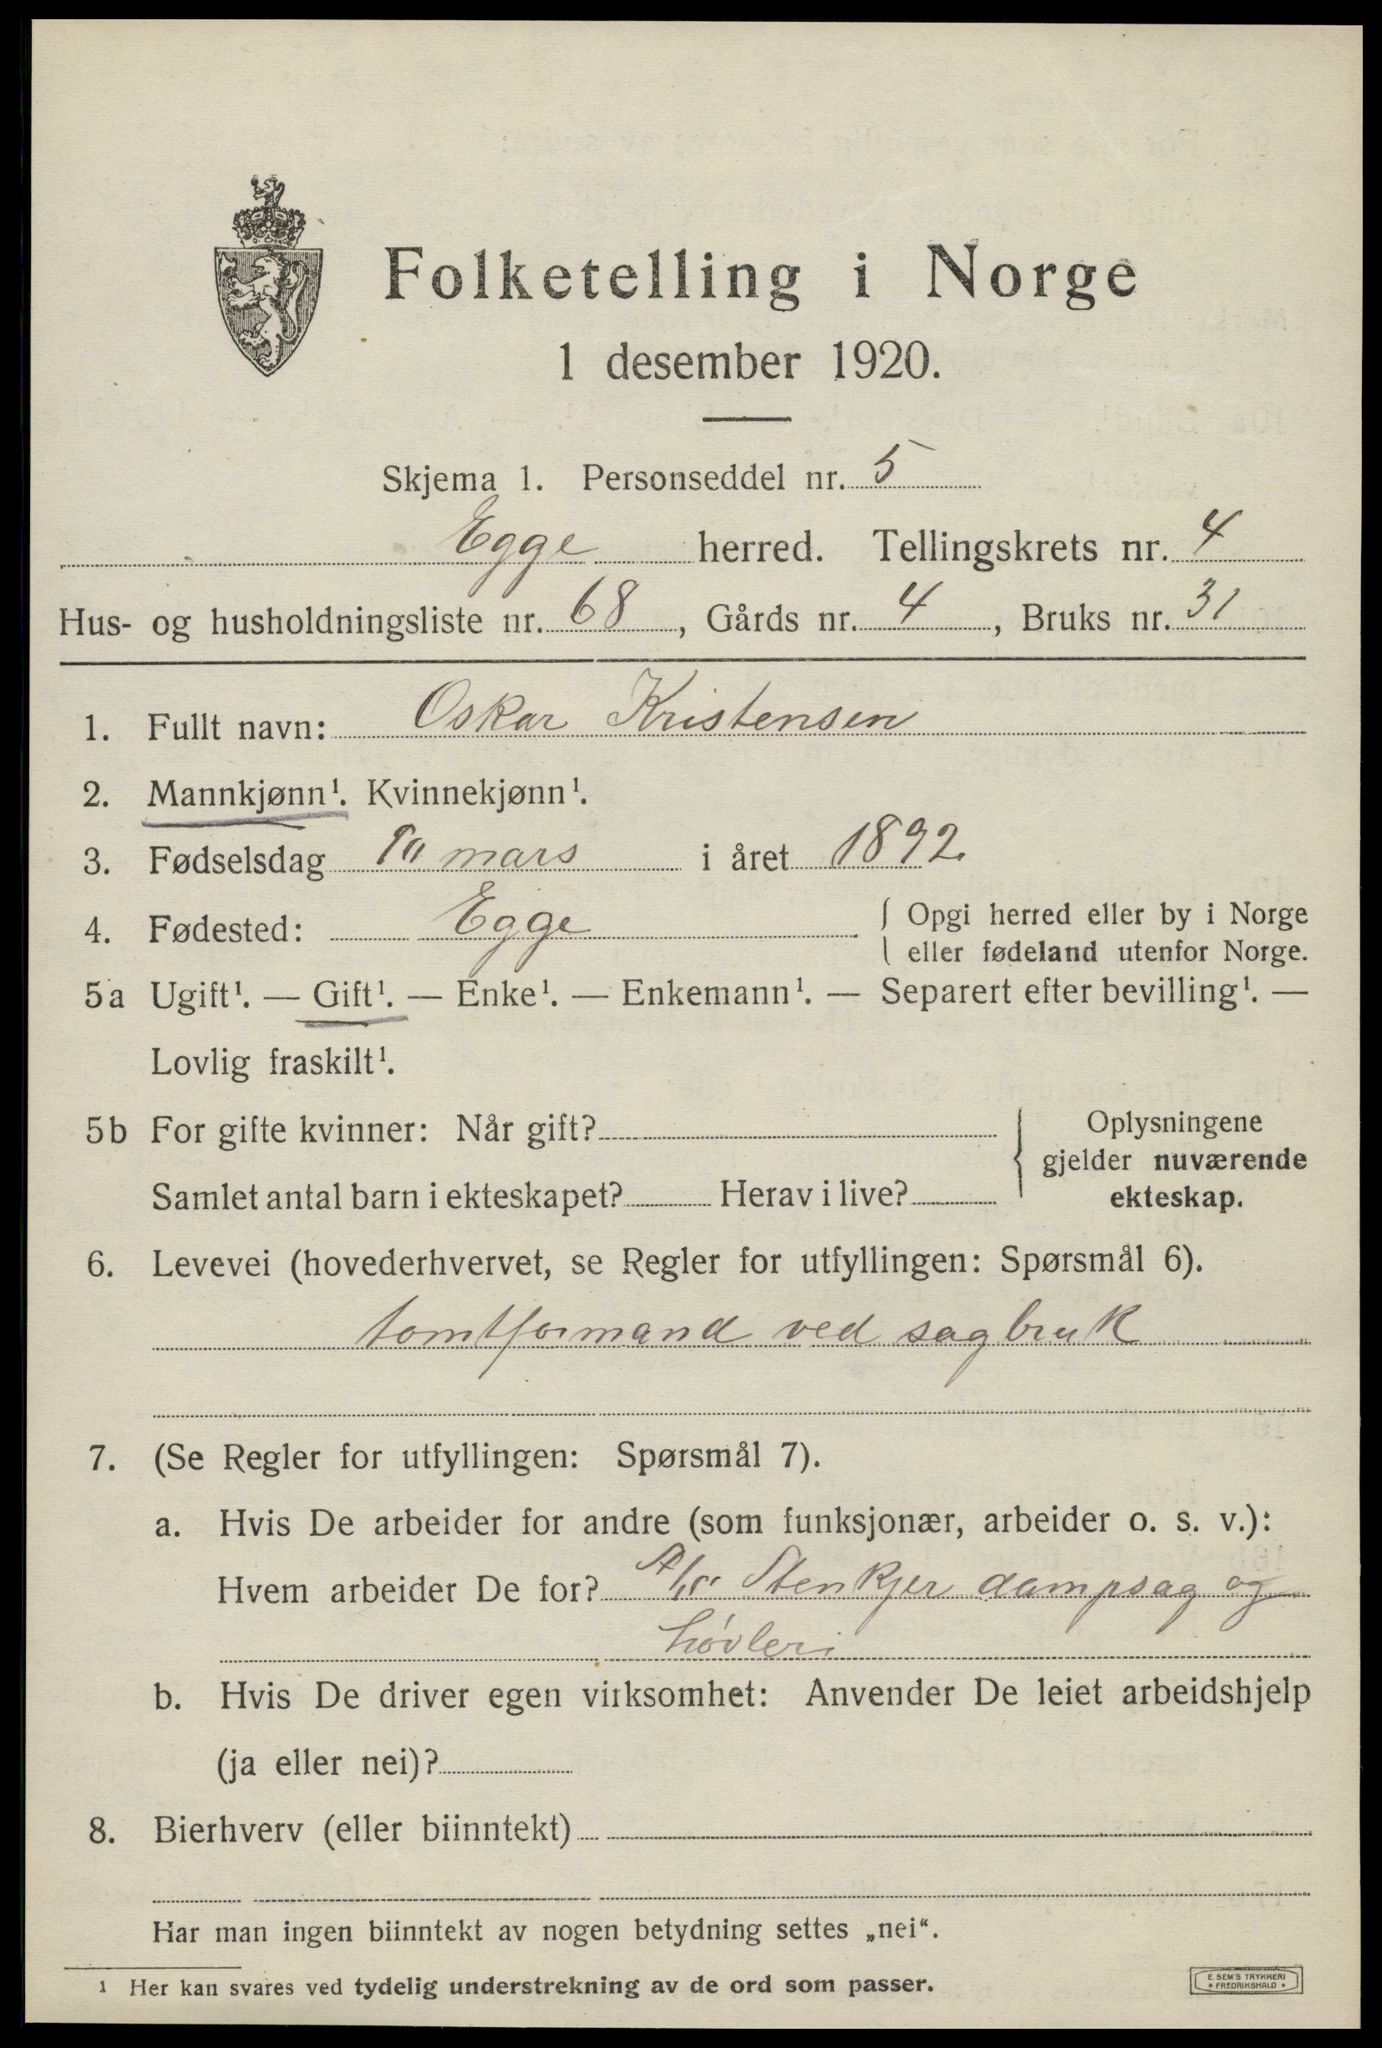 Folketelling i Norge
1 desember 1920.
Skjema 1. Personseddel nr. 5
Egge herred. Tellingskrets nr. 4
Hus- og husholdningsliste nr. 68, Gårds nr. 4, Bruks nr. 31
1. Fullt navn: Oskar Kristensen
2. Mannkjønn¹. Kvinnekjønn¹.
3. Fødselsdag mars i året 1892.
4. Fødested: Egge { Opgi herred eller by i Norge
eller fødeland utenfor Norge.
5a Ugift¹. — Gift¹. — Enke¹. — Enkemann¹. — Separert efter bevilling¹. —
Lovlig fraskilt¹.
5b For gifte kvinner: Når gift? { Oplysningene
gjelder nuværende
Samlet antal barn i ekteskapet? Herav i live? ekteskap.
6. Levevei (hovederhvervet, se Regler for utfyllingen: Spørsmål 6).
tomtformand ved sagbruk
7. (Se Regler for utfyllingen: Spørsmål 7).
a. Hvis De arbeider for andre (som funksjonær, arbeider o. s. v.):
Hvem arbeider De for? Stenkjer dampsag og
høvleri
b. Hvis De driver egen virksomhet: Anvender De leiet arbeidshjelp
(ja eller nei)?
8. Bierhverv (eller biinntekt)
Har man ingen biinntekt av nogen betydning settes „nei“.
¹ Her kan svares ved tydelig understrekning av de ord som passer.
E. SEM'S TRYKKERI
FREDRIKSHALD